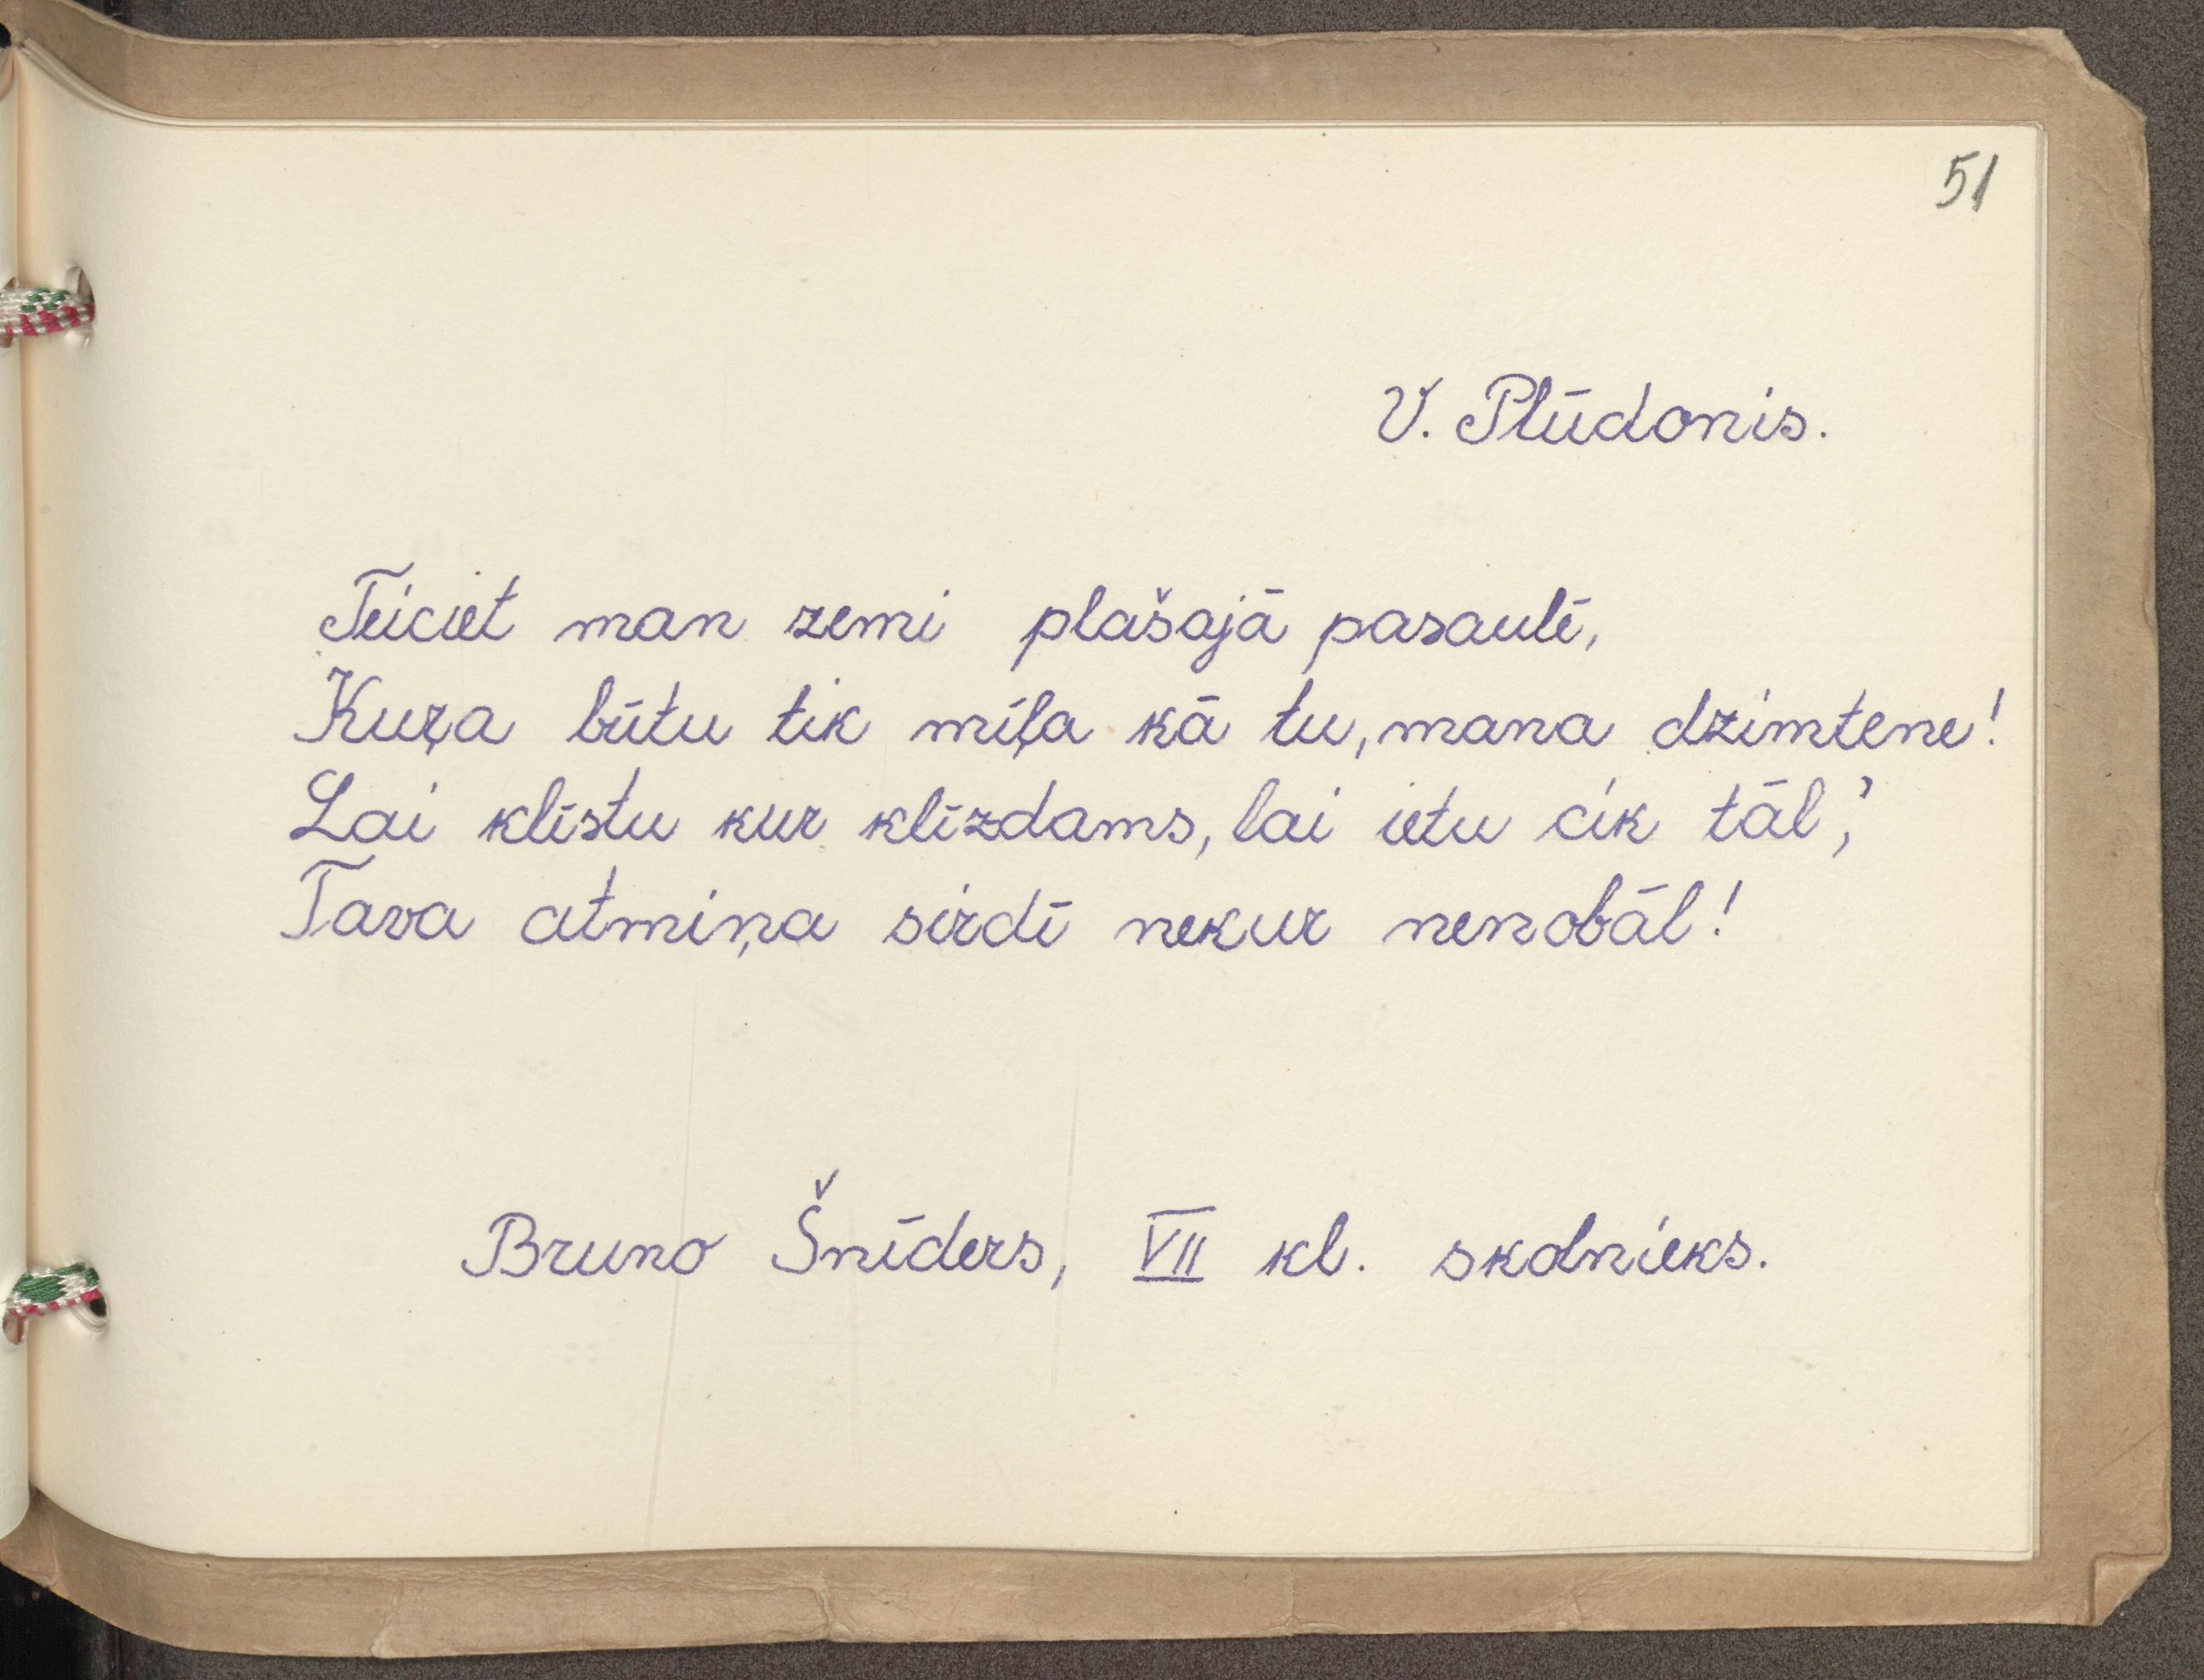 51
V. Plūdonis.
Teiciet man zemi plašajā pasaulē,
Kuŗa būtu tik mīļa kā tu, mana dzimtene!
Lai klīstu kur klīzdams, lai ietu cik tāl',
Tava atmiņa sirdī nekur nenobāl!
Bruno Šnīders, VII kl. skolnieks.